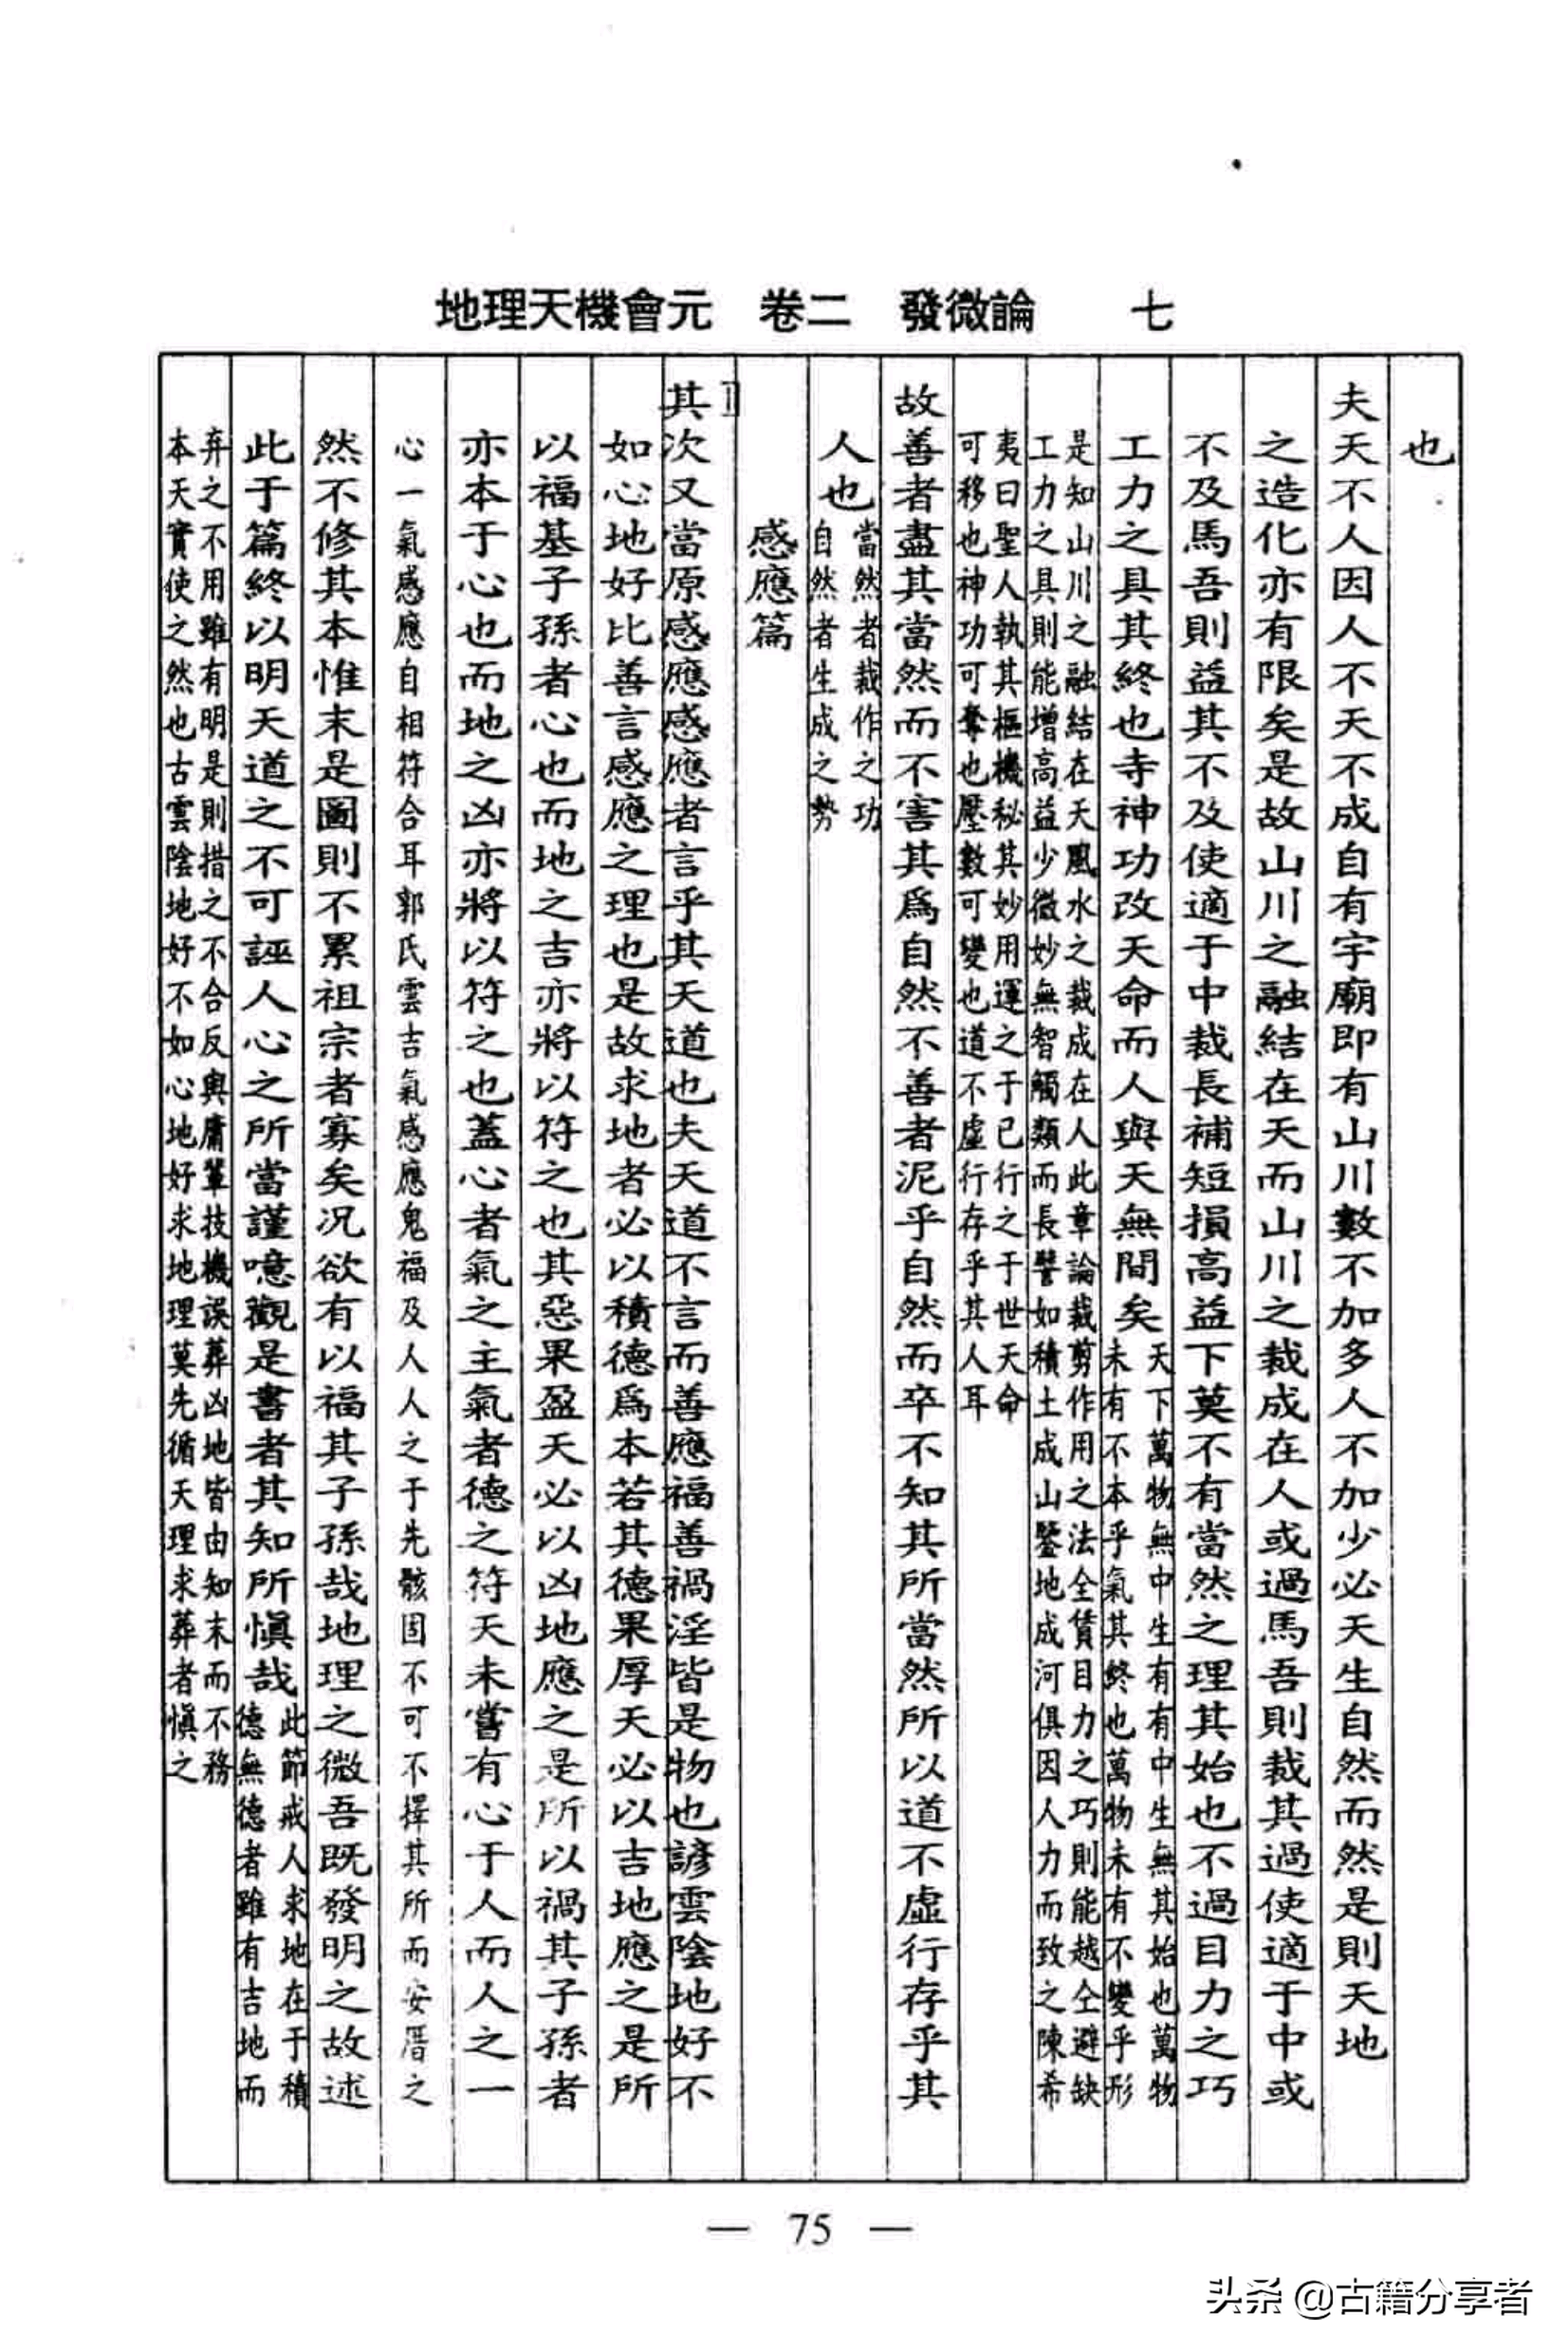 地理天機會元 卷二 發微論 七
也
夫天不人因人不天不成自有宇廟即有山川數不加多人不加少必天生自然而然是則天地
之造化亦有限矣是故山川之融結在天而山川之裁成在人或過馬吾則裁其過使適于中或
不及馬吾則益其不及使適于中裁長補短損高益下莫不有當然之理其始也不過目力之巧
工力之具其終也寺神功改天命而人與天無間矣
天下萬物無中生有有中生無其始也萬物
未有不本乎氣其終也萬物未有不變乎形
是知山川之融結在天風水之裁成在人此章論裁剪作用之法全賃目力之巧則能越仝避缺
工力之具則能增高益少微妙無智觸類而長譬如積土成山鑿地成河俱因人力而致之陳希
夷曰聖人執其樞機秘其妙用運之于已行之于世天命
可移也神功可奪也壓數可變也道不虛行存乎其人耳
故善者盡其當然而不害其爲自然不善者泥乎自然而卒不知其所當然所以道不虛行存乎其
人也
當然者裁作之功
自然者生成之勢
感應篇
其次又當原感應感應者言乎其天道也夫天道不言而善應福善禍淫皆是物也諺雲陰地好不
如心地好比善言感應之理也是故求地者必以積德爲本若其德果厚天必以吉地應之是所
以福基子孫者心也而地之吉亦將以符之也其惡果盈天必以凶地應之是所以禍其子孫者
亦本于心也而地之凶亦將以符之也蓋心者氣之主氣者德之符天未嘗有心于人而人之一
心一氣感應自相符合耳郭氏雲吉氣感應鬼福及人人之于先骸固不可不擇其所而安厝之
然不修其本惟末是圖則不累祖宗者寡矣況欲有以福其子孫哉地理之微吾既發明之故述
此于篇終以明天道之不可誣人心之所當謹噫觀是書者其知所愼哉
此節戒人求地在于積
德無德者雖有吉地而
弃之不用雖有明是則措之不合反輿庸輩技機誤葬凶地皆由知末而不務
本天實使之然也古雲陰地好不如心地好求地理莫先循天理求葬者愼之
— 75 —
头条 @古籍分享者